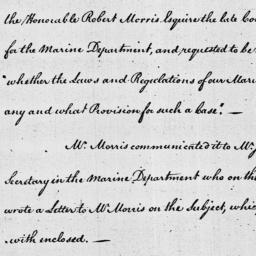 the Honorable Robert Morris Esquire the late
for the Marine Department, and requested to be
"whether the Laws and Regulations of our
any and what Provision for such a Case". —
Mr. Morris communicated it to Mr.
Secretary in the Marine Department who on
wrote a Letter to Mr. Morris on the Subject,
with enclosed. —